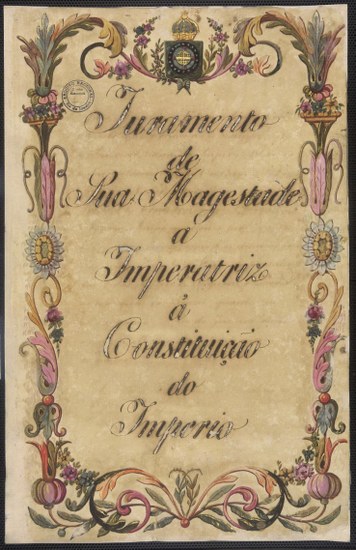 Juramento
de
Sua Magestade
a
Imperatriz
á
Constituição
do
Imperio